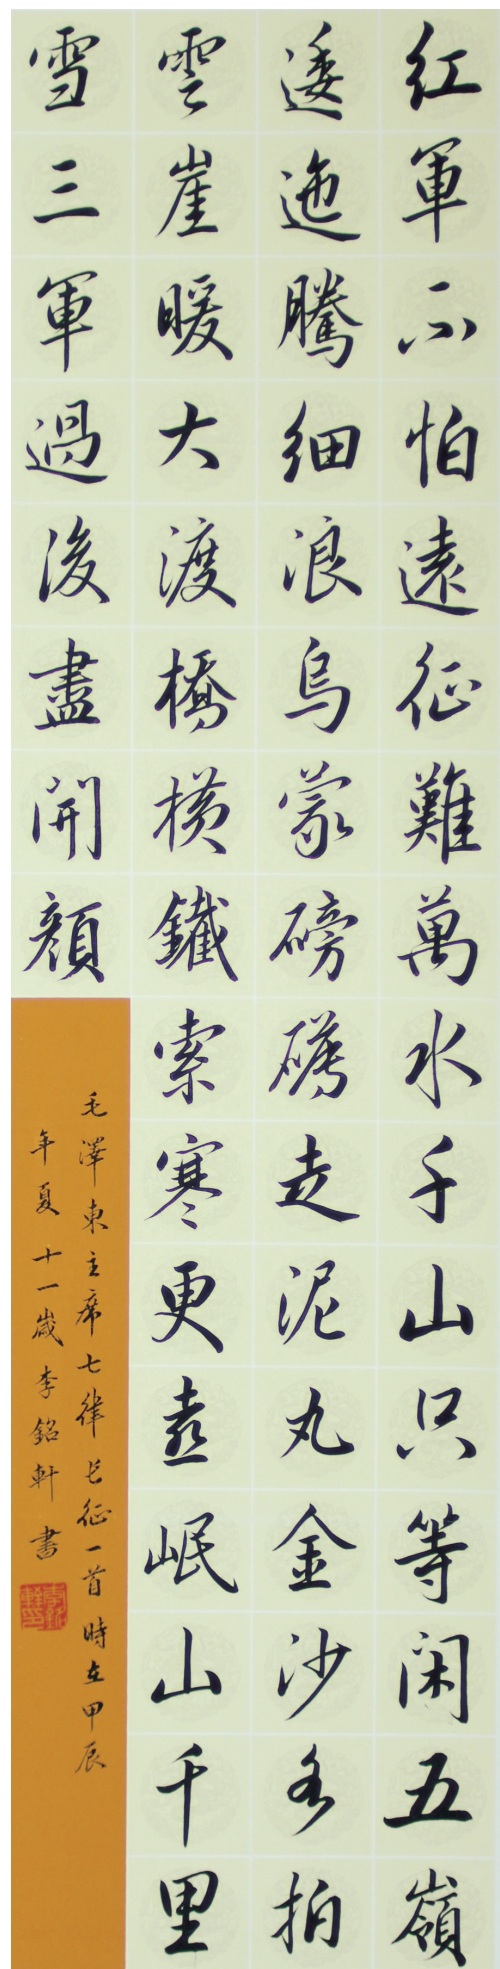 紅軍不怕遠征難萬水千山只等閑五嶺
逶迤騰細浪烏蒙磅礴走泥丸金沙水拍
雲崖暖大渡橋橫鐵索寒更喜岷山千里
雪三軍過後盡開顏
毛澤東主席七律長征一首時在甲辰
年夏十一歲李銘軒書